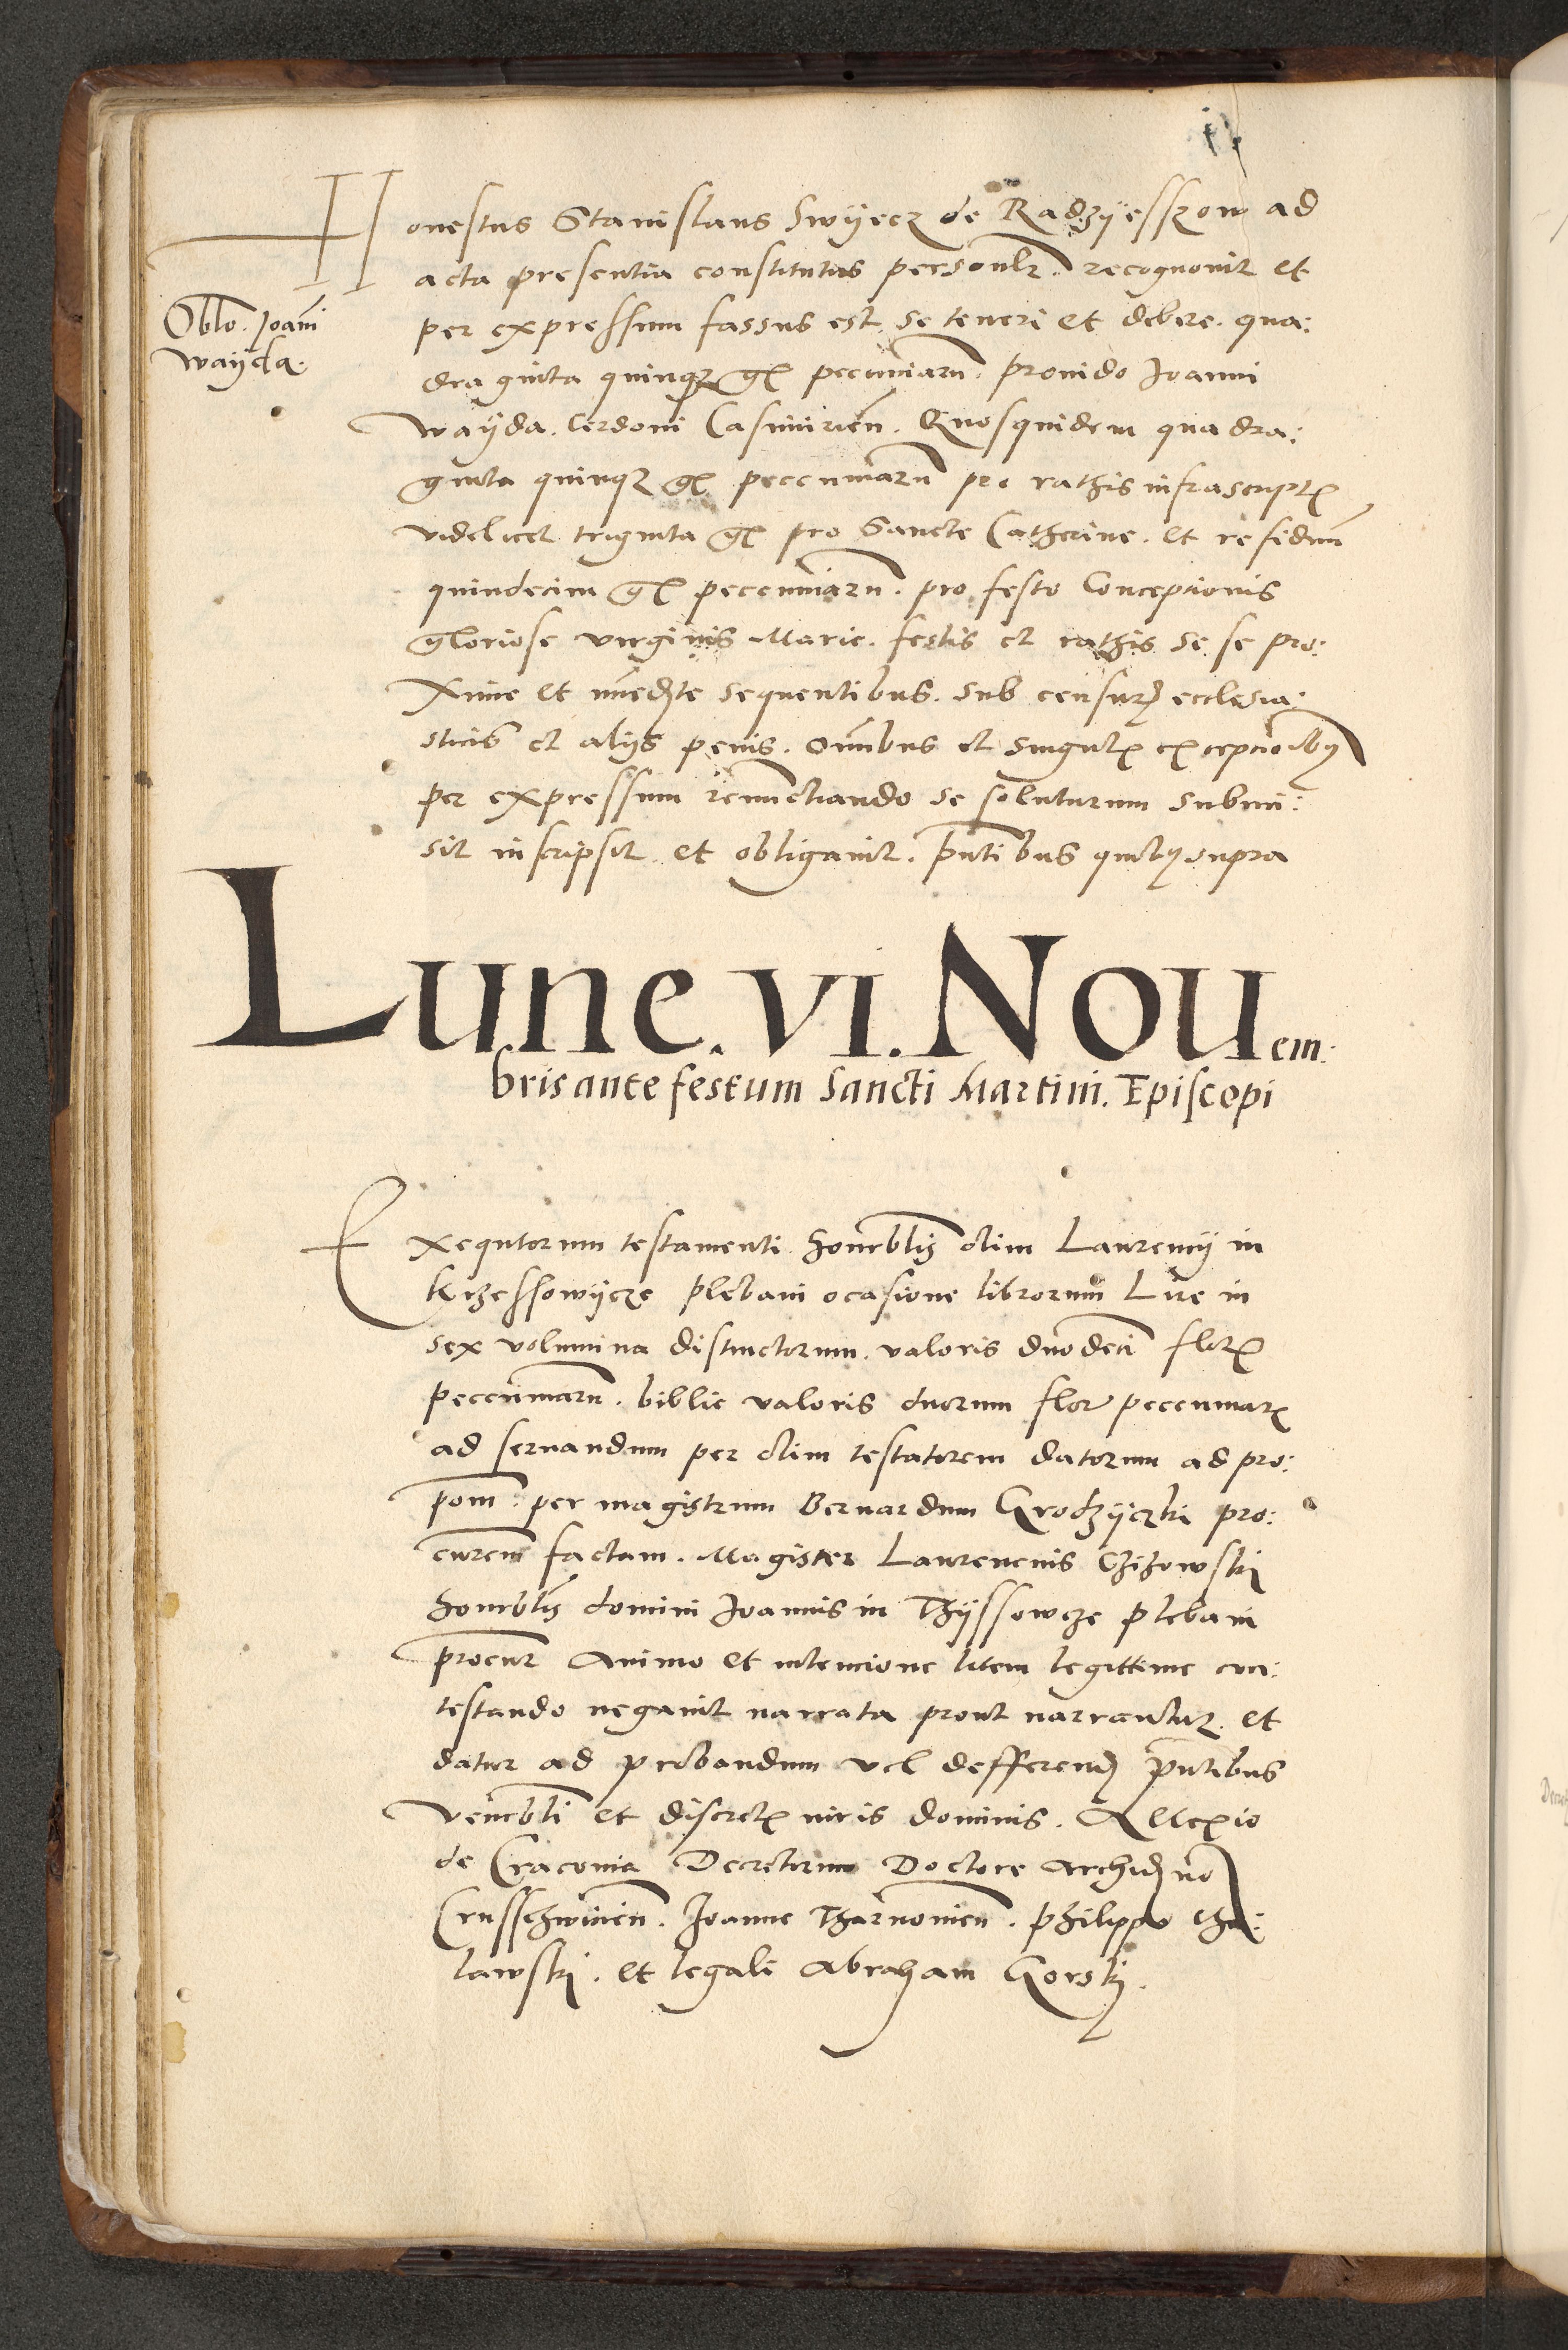 Honestus Stanislaus Swyecz de Radzyesszow ad
acta presentia constitutus personlr. recognovit et
Oblo. Joanni
wayda.
per expressum fassus est se teneri et debere. qua:
draginta quinqz gr pecuniarum. provido Joanni
wayda. Cerdoni Casimirien. Quosquidem quadra:
ginta quinqz gr pecuniarum pro rathis infrascriptis
videlicet triginta gr pro Sancte Catherine. et residuum
quindecim gr pecuniarum. pro festo Conceptionis
gloriose virginis Marie. festis et rathis se se pro:
xime et immediate sequentibus. sub censuris ecclesia:
sticis et alijs penis. omnibus et singulis exceptionibus
per expressum renunctiando se soluturum submi:
sit inscripsit et obligavit. pntibus quibus supra
LUNE. VI. NOUem:
bris ante festum Sancti Martini. Episcopi
Exequtorum testamenti honorblis olim Laurencij in
Krzessowycze plebani ocasione librorum Lire in
sex volumina distinctorum. valoris duodeci flor
peccuniarum. biblie valoris duorum flor peccuniarum
ad servandum per olim testatorem datorum ad pro:
pom. per magistrum Bernardum Grodzyczki pro:
curem factam. Magister Laurencius Chizowski
honorblis domini Joannis in Thyssowcze plebani
procur Animo et intencione litem legittime con:
testando negavit narrata prout narrantur. et
datur ad probandum vel defferend pntibus
venerbli et discretis viris dominis. Allexio
de Cracovia Decretorum Doctore archidno
Crusschwicien. Joanne Tharnowien. philippo Cha:
lawski. et legali Abraham Gorski.